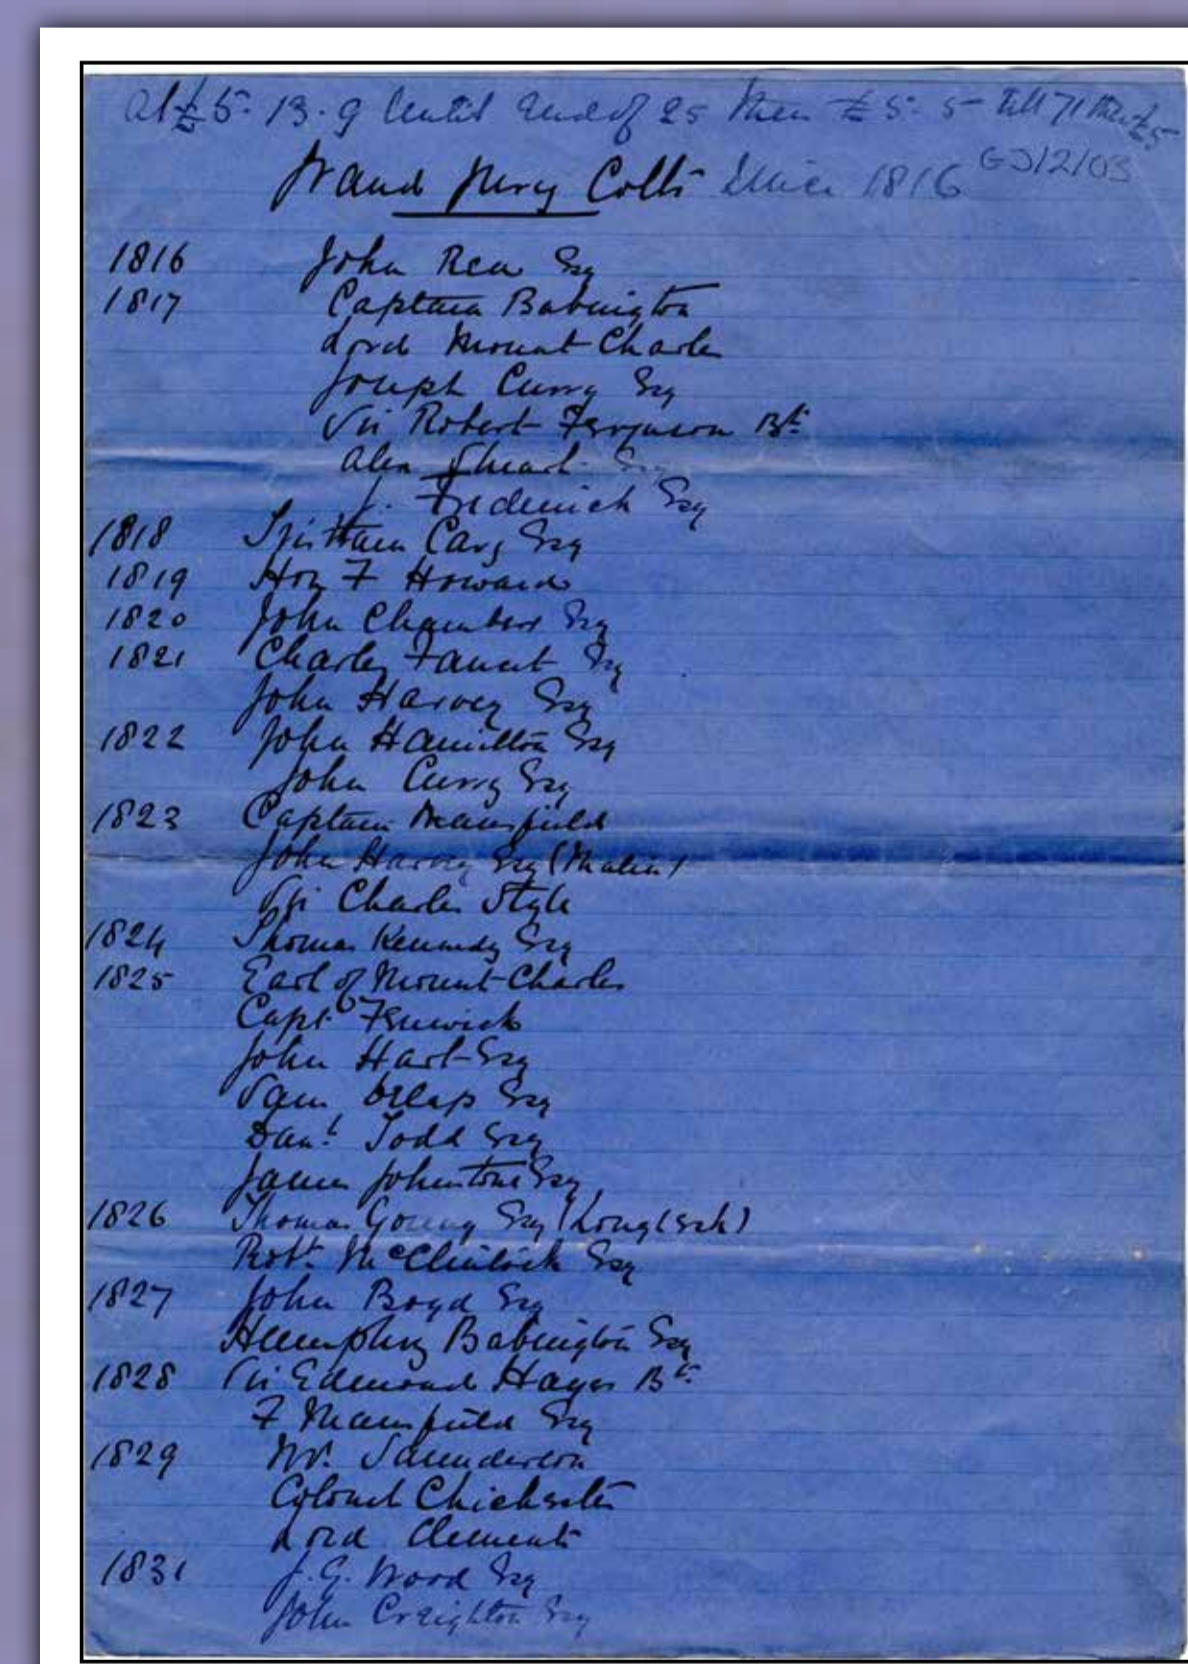 At £5. 13. 9 Until End of 25 then £5. 5 - till 71 then £5
Grand Jury Colts Since 1816 GJ/2/03
1816 John Rea Esq
1817 Captain Babington
Lord Mount Charles
Joseph Curry Esq
Sir Robert Ferguson Bt
Alex Stuart Esq
J. Frederick Esq
1818 Cary Esq
1819 Hon F Howard
1820 John Chambers Esq
1821 Charles Esq
John Harvey Esq
1822 John Hamilton Esq
John Curry Esq
1823 Captain Mansfield
John Harvey Esq (Malin)
Sir Charles Style
1824 Thomas Kennedy Esq
1825 Earl of Mount-Charles
Capt. Fenwick
John Hart Esq
Sam Delap Esq
Danl. Todd Esq
James Johnstone Esq
1826 Thomas Young Esq (Lough Esk)
Robt. McClintock Esq
1827 John Boyd Esq
Humphrey Babington Esq
1828 Sir Edmund Hayes Bt
F Mansfield Esq
1829 Saunderson
Colonel Chichester
Lord Clements
1831 J. G. Wood Esq
John Creighton Esq